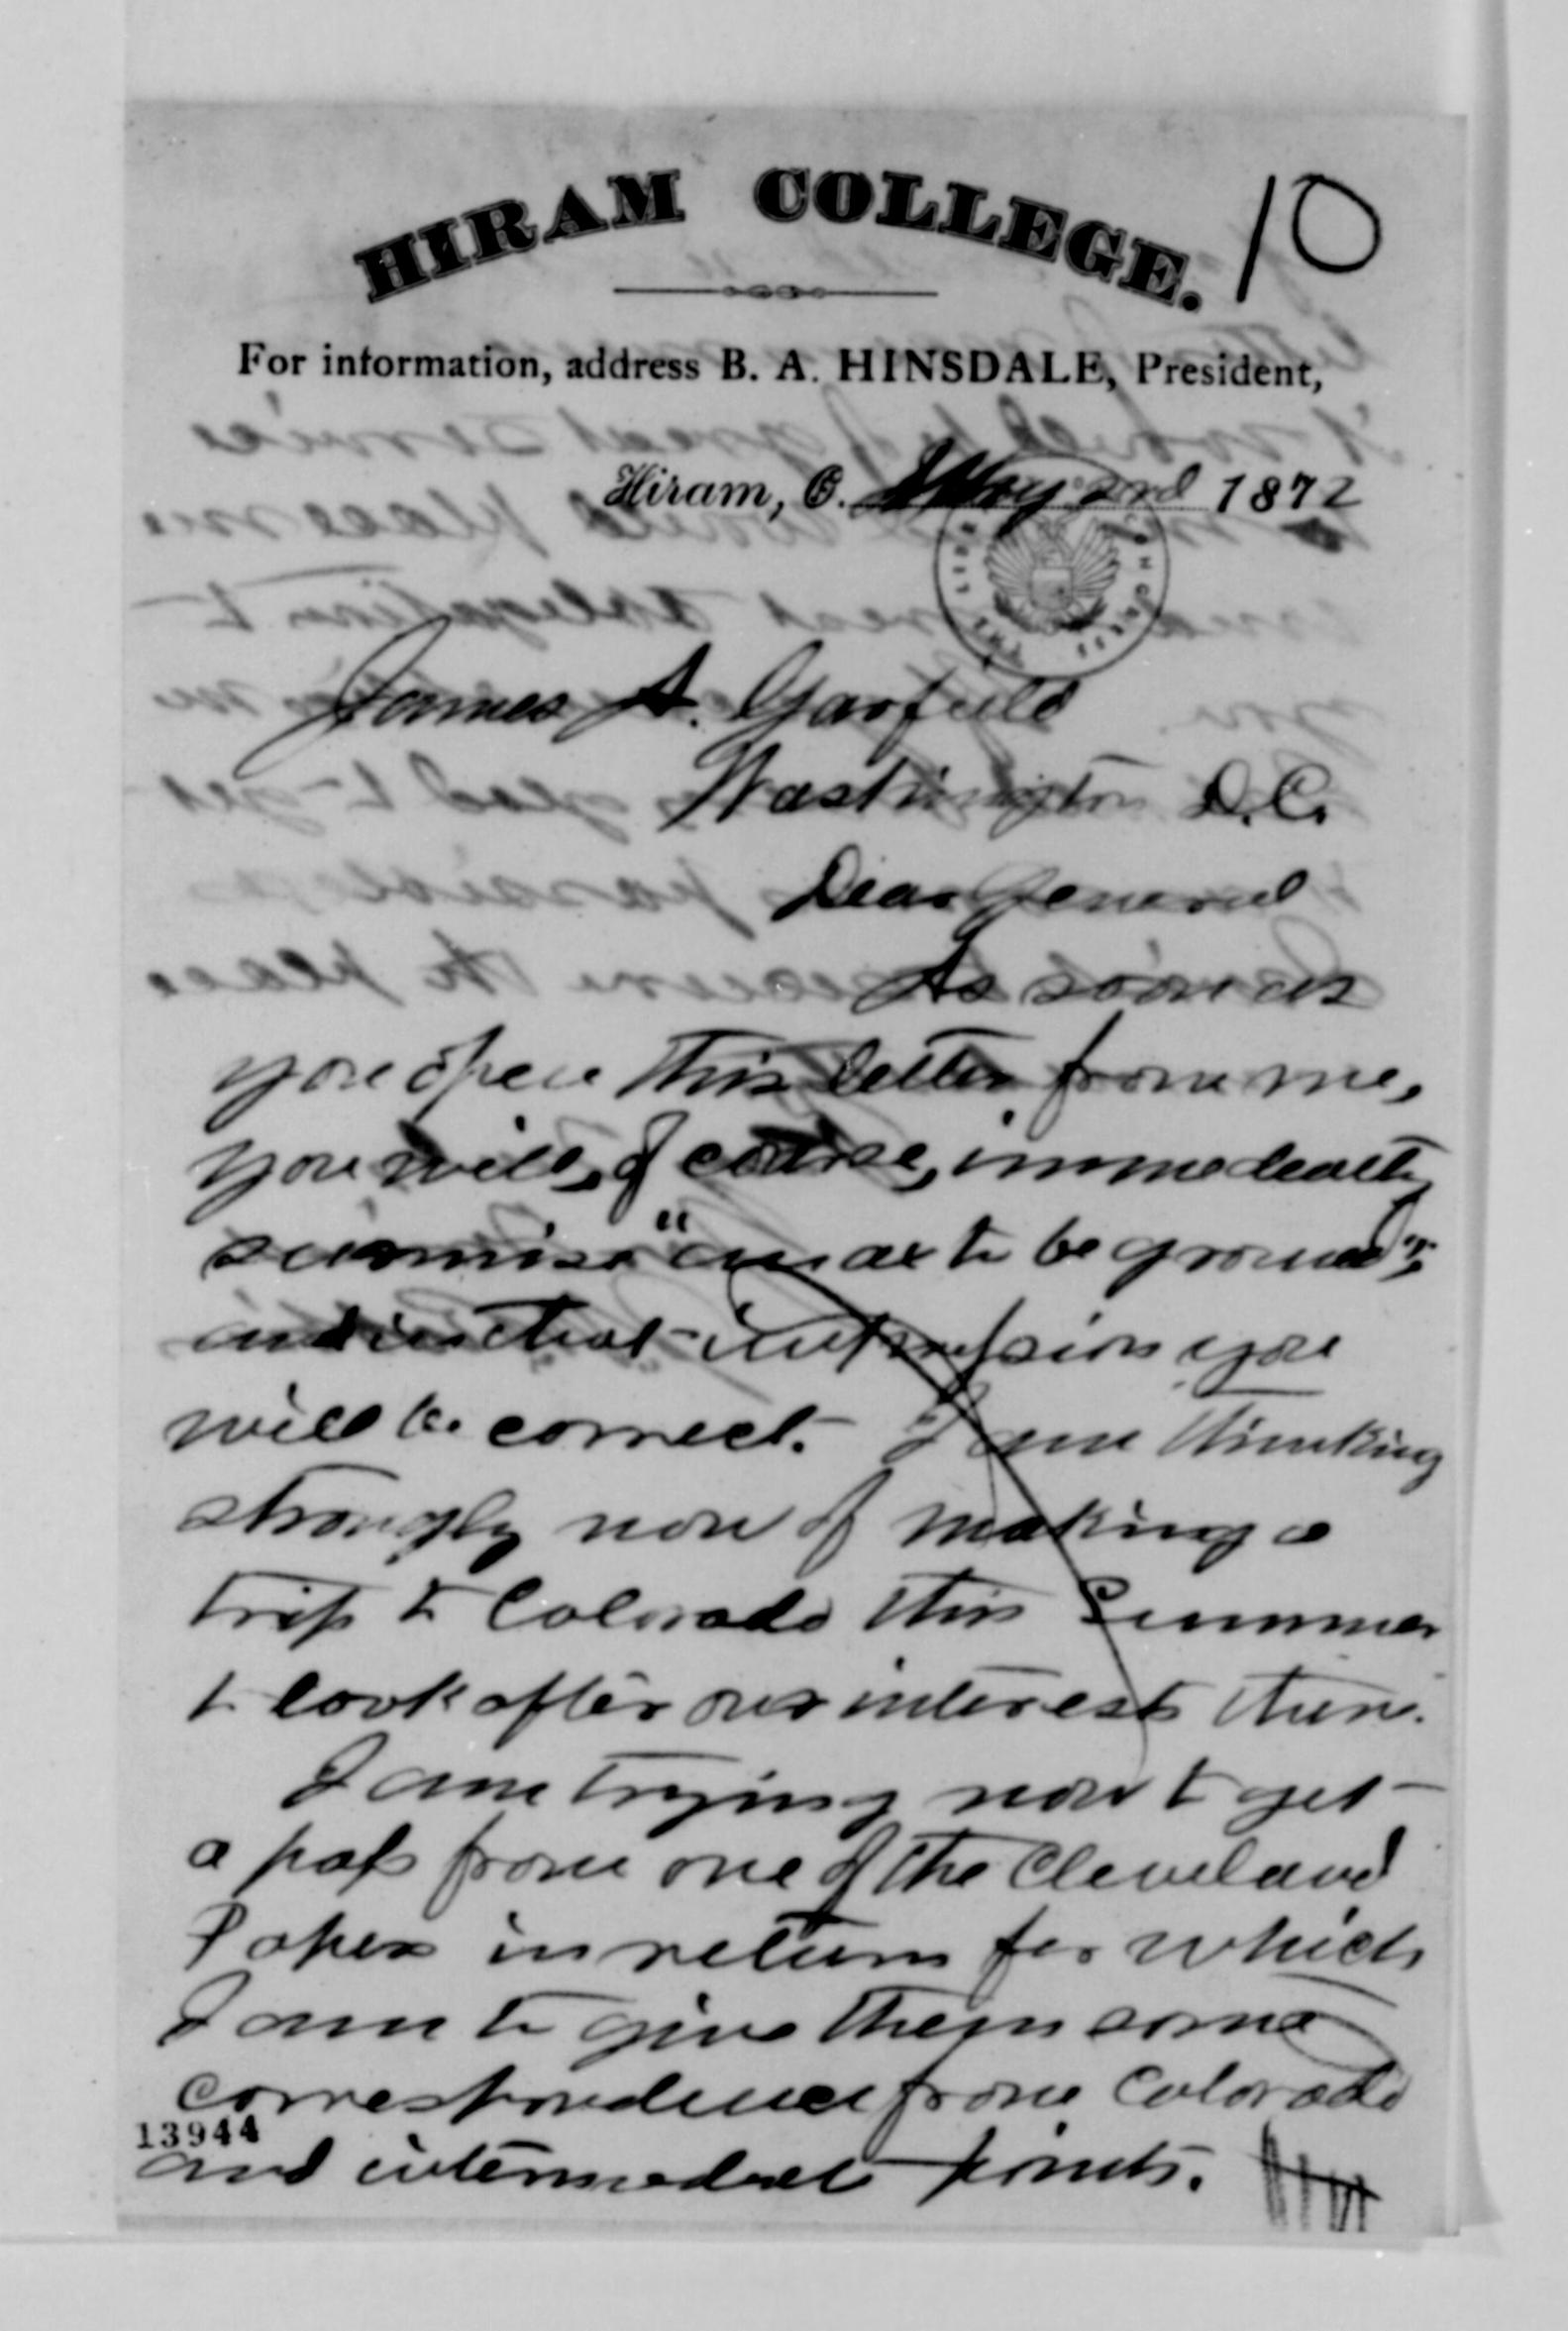 HIRAM COLLEGE.
10
For information, address B. A. HINSDALE, President,
Hiram, O. May 2nd 1872
James A. Garfield
Washington D.C.
Dear General
As soon as
you open this letter from me,
you will, of course, immediately
surmise "an ax to be ground";
and in that impression you
will be correct. I am thinking
strongly now of making a
trip to Colorado this Summer
to look after our interests there.
I am trying now to get
a pass from one of the Cleveland
Papers in return for which
I am to give them some
correspondence from Colorado
13944
and intermediate points.